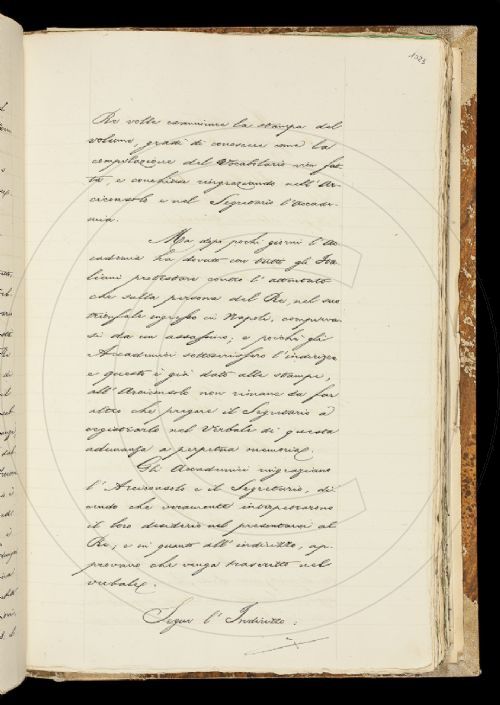 1023
Re volle esaminare la stampa del
volume, gradì di conoscere come la
compilazione del Vocabolario vien fat-
ta, e conchiuse ringraziando nell'Ar-
ciconsolo e nel Segretario l'Accade-
mia.
Ma dopo pochi giorni l'Ac-
cademia ha dovuto con tutti gli Ita-
liani protestare contro l'attentato
che sulla persona del Re, nel suo
trionfale ingresso in Napoli, compieva-
si da un assassino; e poichè gli
Accademici sottoscrissero l'indirizzo
e questo è già dato alle stampe,
all'Arciconsolo non rimane da far
altro che pregare il Segretario a
registrarlo nel Verbale di questa
adunanza a perpetua memoria.
Gli Accademici ringraziano
l'Arciconsolo e il Segretario, di-
cendo che veramente interpretarono
il loro desiderio nel presentarsi al
Re; e in quanto all'indirizzo, ap-
provano che venga trascritto nel
verbale.
Segue l'Indirizzo: